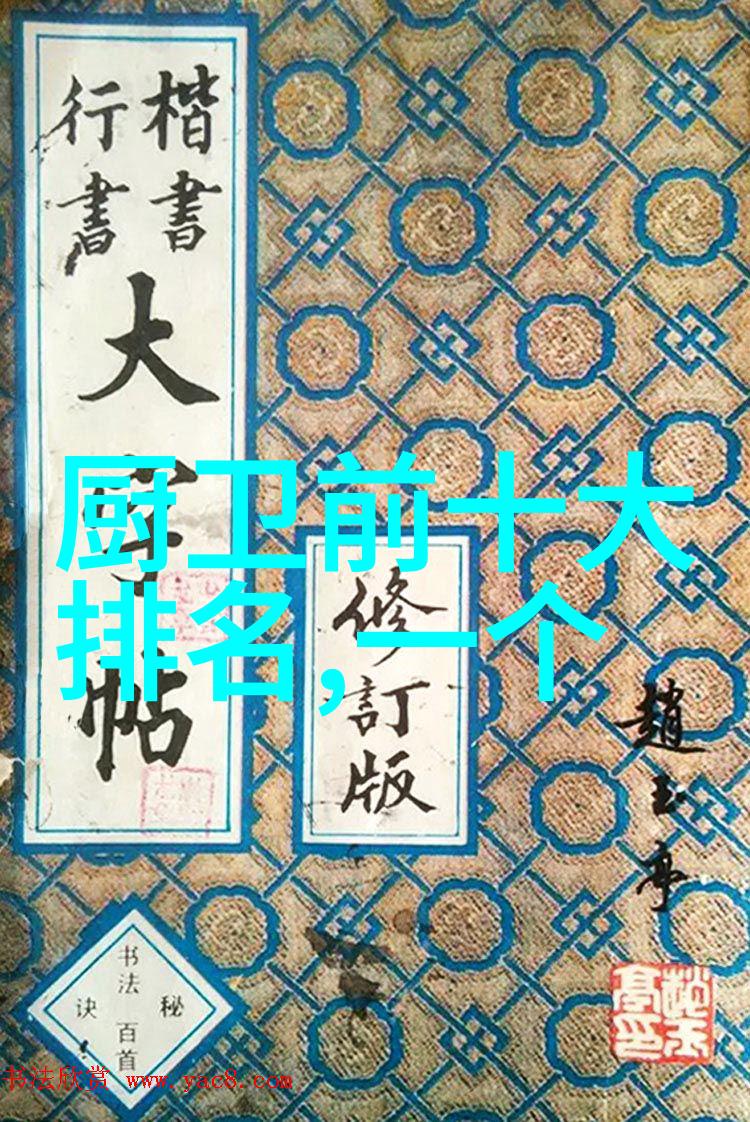 楷書
行書
大字帖
厨卫前十大
排名,一个
修訂版
趙玉亭
秘
书法百首
诀
书法欣赏 www.yac8.com